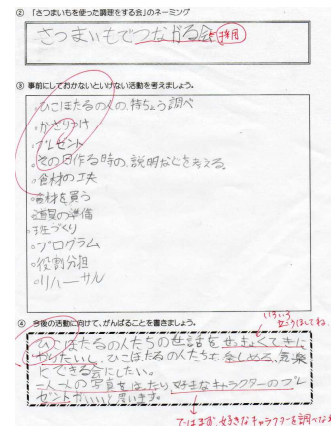 ② 「さつまいもを使った調理をする会」のネーミング
さつまいもでつながる会 採用
③ 事前にしておかないといけない活動を考えましょう。
・ひこほたるの人の、持ちょう調べ
・かざりつけ
・プレゼント
・その日作る時の、説明などを考える。
・食材の工夫
・食材を買う
・道具の準備
・班づくり
・プログラム
・役割分担
・リハーサル
④ 今後の活動に向けて、がんばることを書きましょう。
ひこほたるの人たちの世話をせっきょくてきに
やりたいし、ひこほたるの人たちも、楽しめる、気楽
にできる会にしたい。
一人一人の写真をはったり好きなキャラクターのプレ
ゼントがいいと思います。
ではまず、好きなキャラクターを調べな